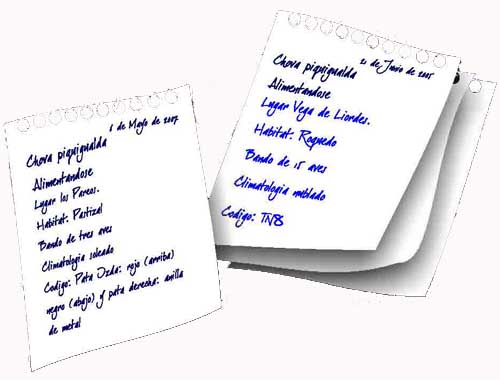 6 de Mayo de 2007
Chova piquigualda
Alimentandose
Lugar los Pareos.
Habitat: Pastizal
Bando de tres aves
Climatologia soleado
Codigo: Pata Izda: rojo (arriba)
negro (abajo) y pata derecha: anilla
de metal
21 de Junio de 2005
Chova piquigualda
Alimentandose
Lugar Vega de Liordes.
Habitat: Roquedo
Bando de 15 aves
Climatologia nublado
Codigo: TN8